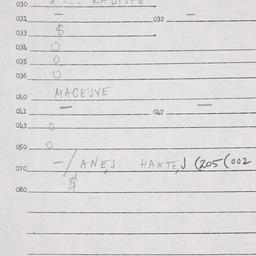 030
031 — 032 —
033 $
034 O
035 O
036 O
040 MACEJVE
041 — 042 —
043 O
050 O
070 —/ANEJ HAXTEJ (205(002
080 $